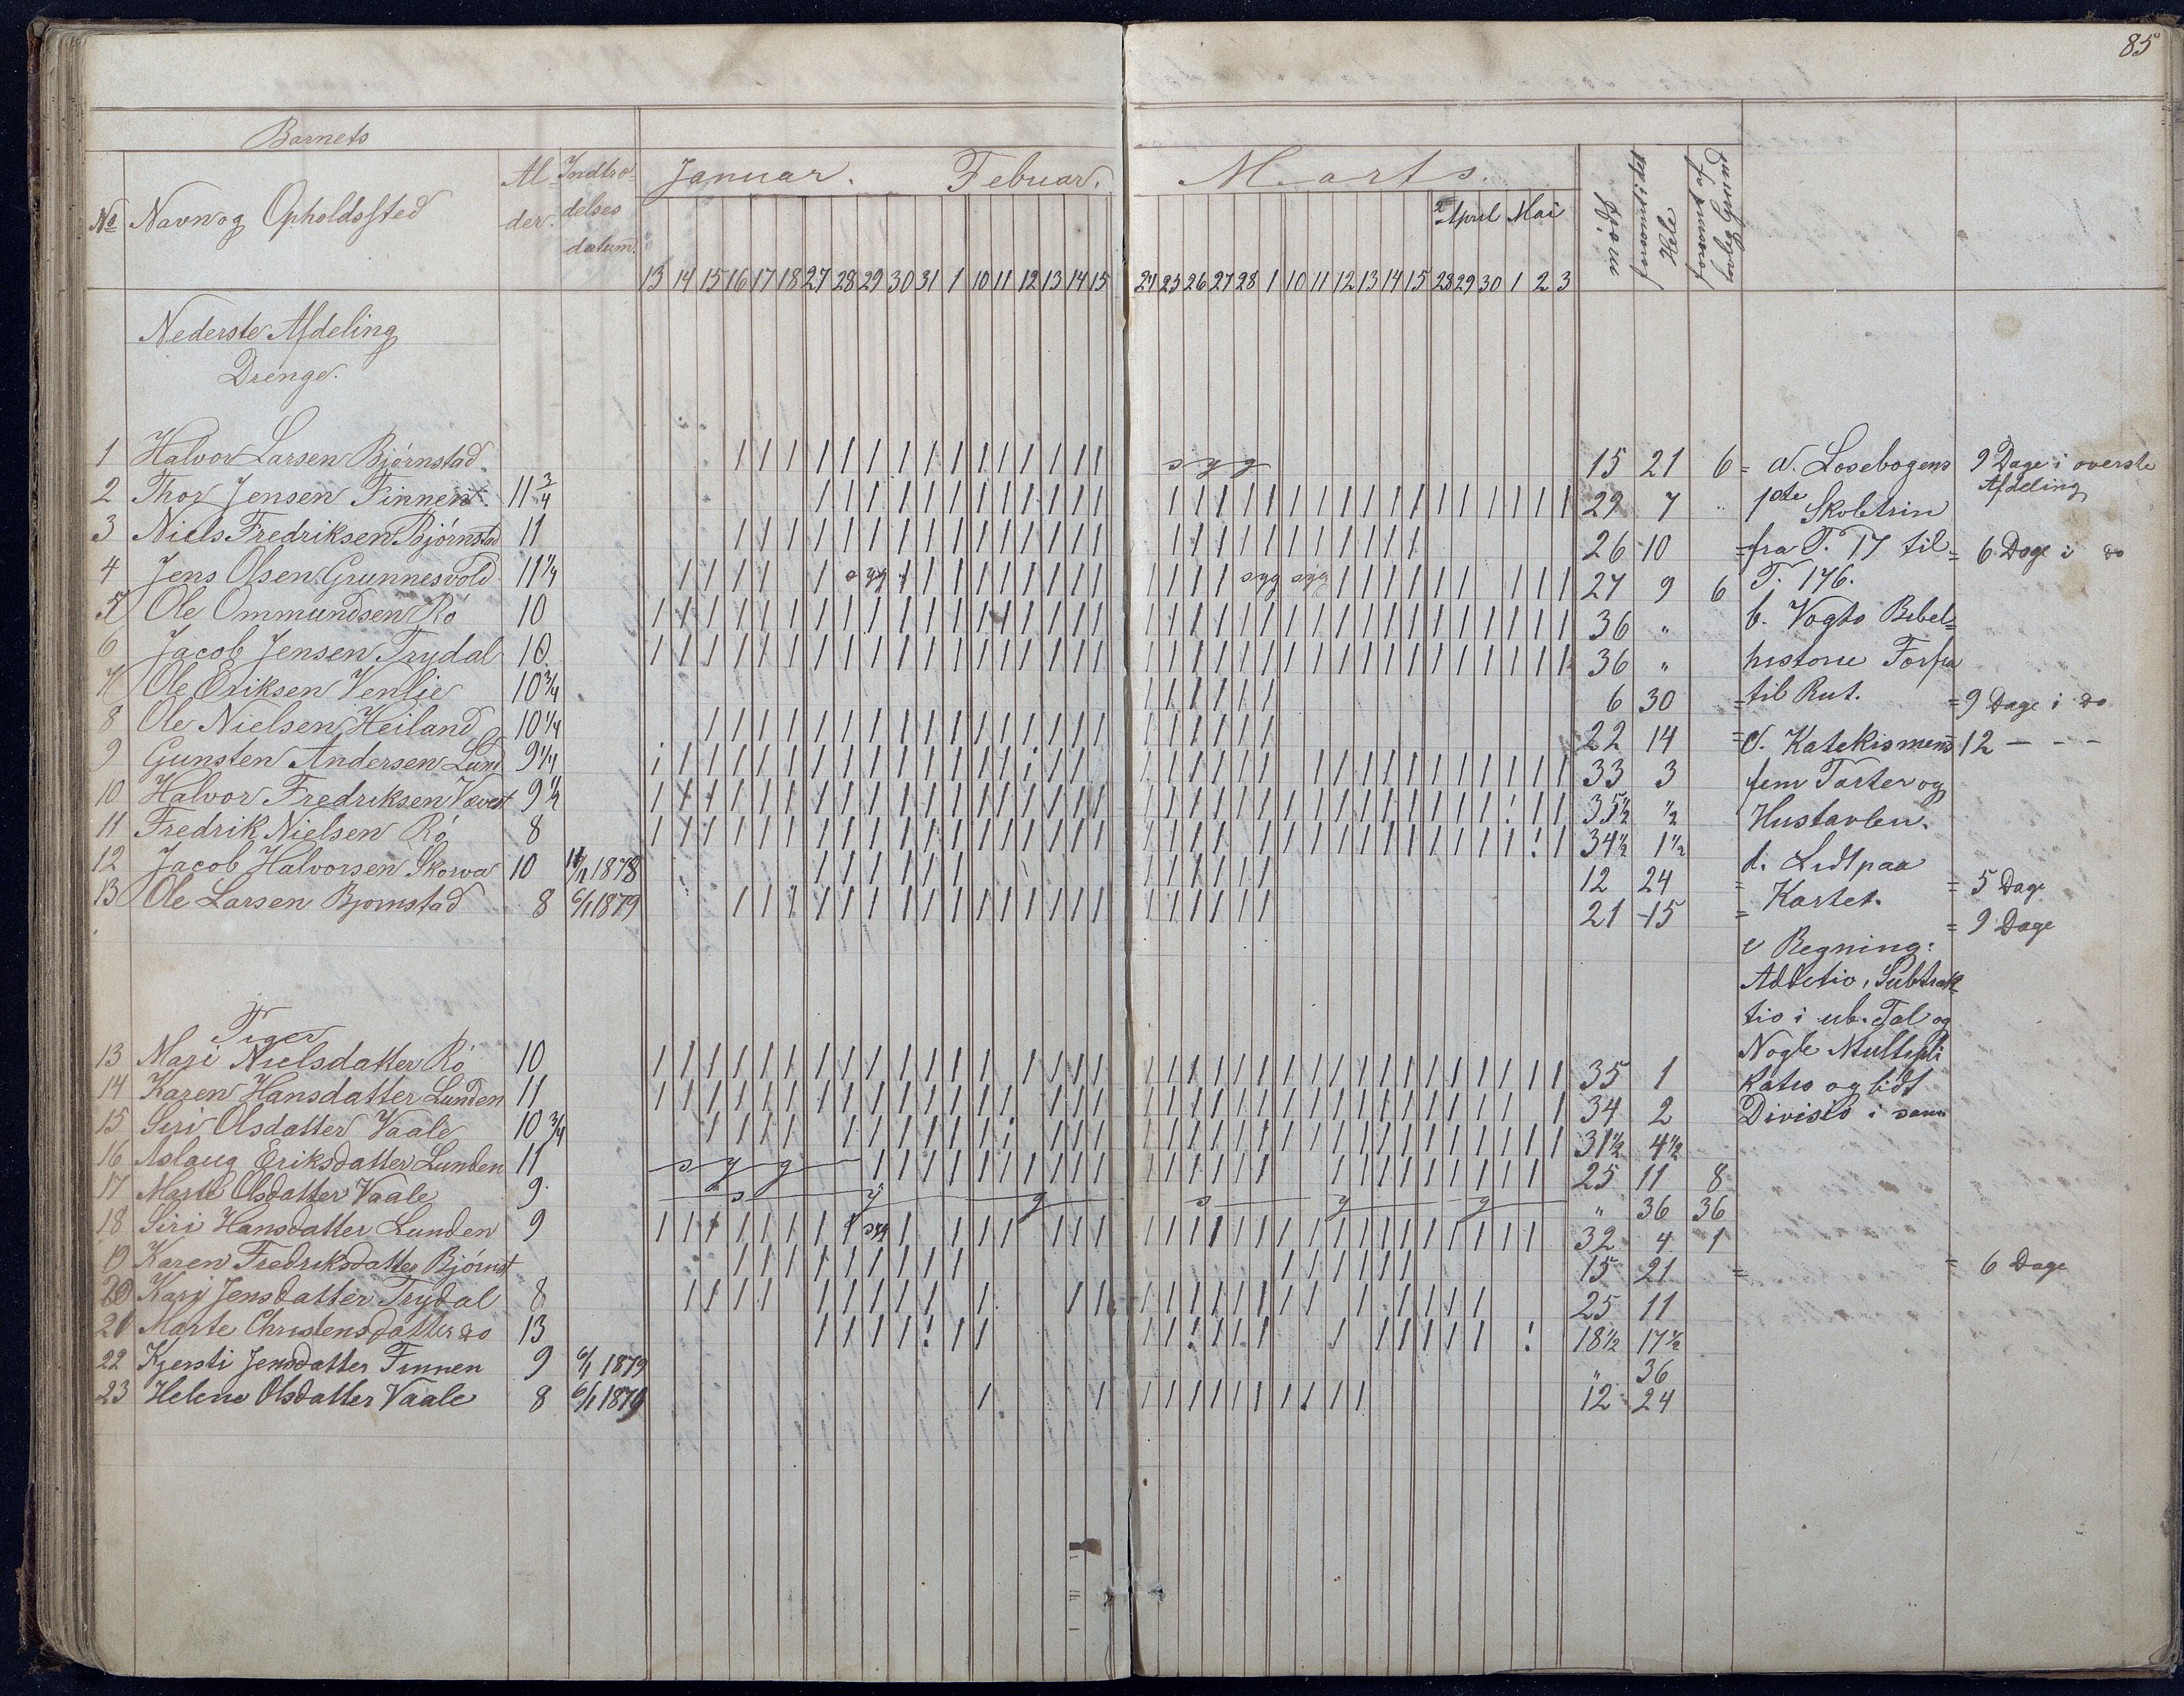 85
Barnets
No Navn og Opholdssted Al-der. Indtrædelses datum. Januar. Februar. Marts. 2 April Mai
Mødt forsømt i det Hele forsømt af lovlig Grund
13 14 15 16 17 18 27 28 29 30 31 1 10 11 12 13 14 15 24 25 26 27 28 1 10 11 12 13 14 15 28 29 30 1 2 3
Nederste Afdeling
Drenge.
1 Halvor Larsen Bjørnstad syg 15 21 6 =
2 Thor Jensen Finnen 11 3/4 29 7 "
3 Niels Fredriksen Bjørnstad 11 26 10 =
4 Jens Olsen Grunnesvold 11 1/4 syg syg syg 27 9 6
5 Ole Ommundsen Rö 10 36 "
6 Jacob Jensen Trydal 10. 36 "
7 Ole Eriksen Venlie 10 3/4 6 30 =
8 Ole Nielsen Heiland 10 1/4 22 14 =
9 Gunsten Andersen Lund 9 1/4 33 3
10 Halvor Fredriksen 9 1/2 35 1/2 1/2
11 Fredrik Nielsen Rö 8 34 1/2 1 1/2
12 Jacob Halvorsen Skorva 10 1878 12 24 =
13 Ole Larsen Bjornstad 8 6/1 1879 21 15 =
Piger
13 Mari Nielsdatter Rö 10 35 1
14 Karen Hansdatter Lunden 11 34 2
15 Siri Olsdatter Vaale 10 3/4 31 1/2 4 1/2
16 Aslaug Eriksdatter Lunden 11 syg 25 11 8
17 Marte Olsdatter Vaale 9. s y g s y g " 36 36
18 Siri Hansdatter Lunden 9 syg 32 4 1
19 Karen Fredriksdatter Bjørnst 15 21 = = 6 Dage
20 Kari Jensdatter Trydal 8 25 11
21 Marte Christensdatter do 13 18 1/2 17 1/2
22 Kjersti Jensdatter Finnen 9 6/1 1879 " 36
23 Helene Olsdatter Vaale 8 6/1 1879 12 24
a. Læsebogens
1ste Skoletrin
fra P. 17 til
P. 176.
b. Vogts Bibel=
historie Forfra
til Rut.
c. Katekismens
fem Parter og
Hustavlen.
d. Lidt paa
Kartet.
e Regning:
Additio, Subtrak=
tio i ub. Tal og
Nogle Multipli
katio og lidt
Divisio i samme
9 Dage i øverste
Afdeling
= 6 Dage i do
= 9 Dage i do
12 - - -
= 5 Dage
= 9 Dage